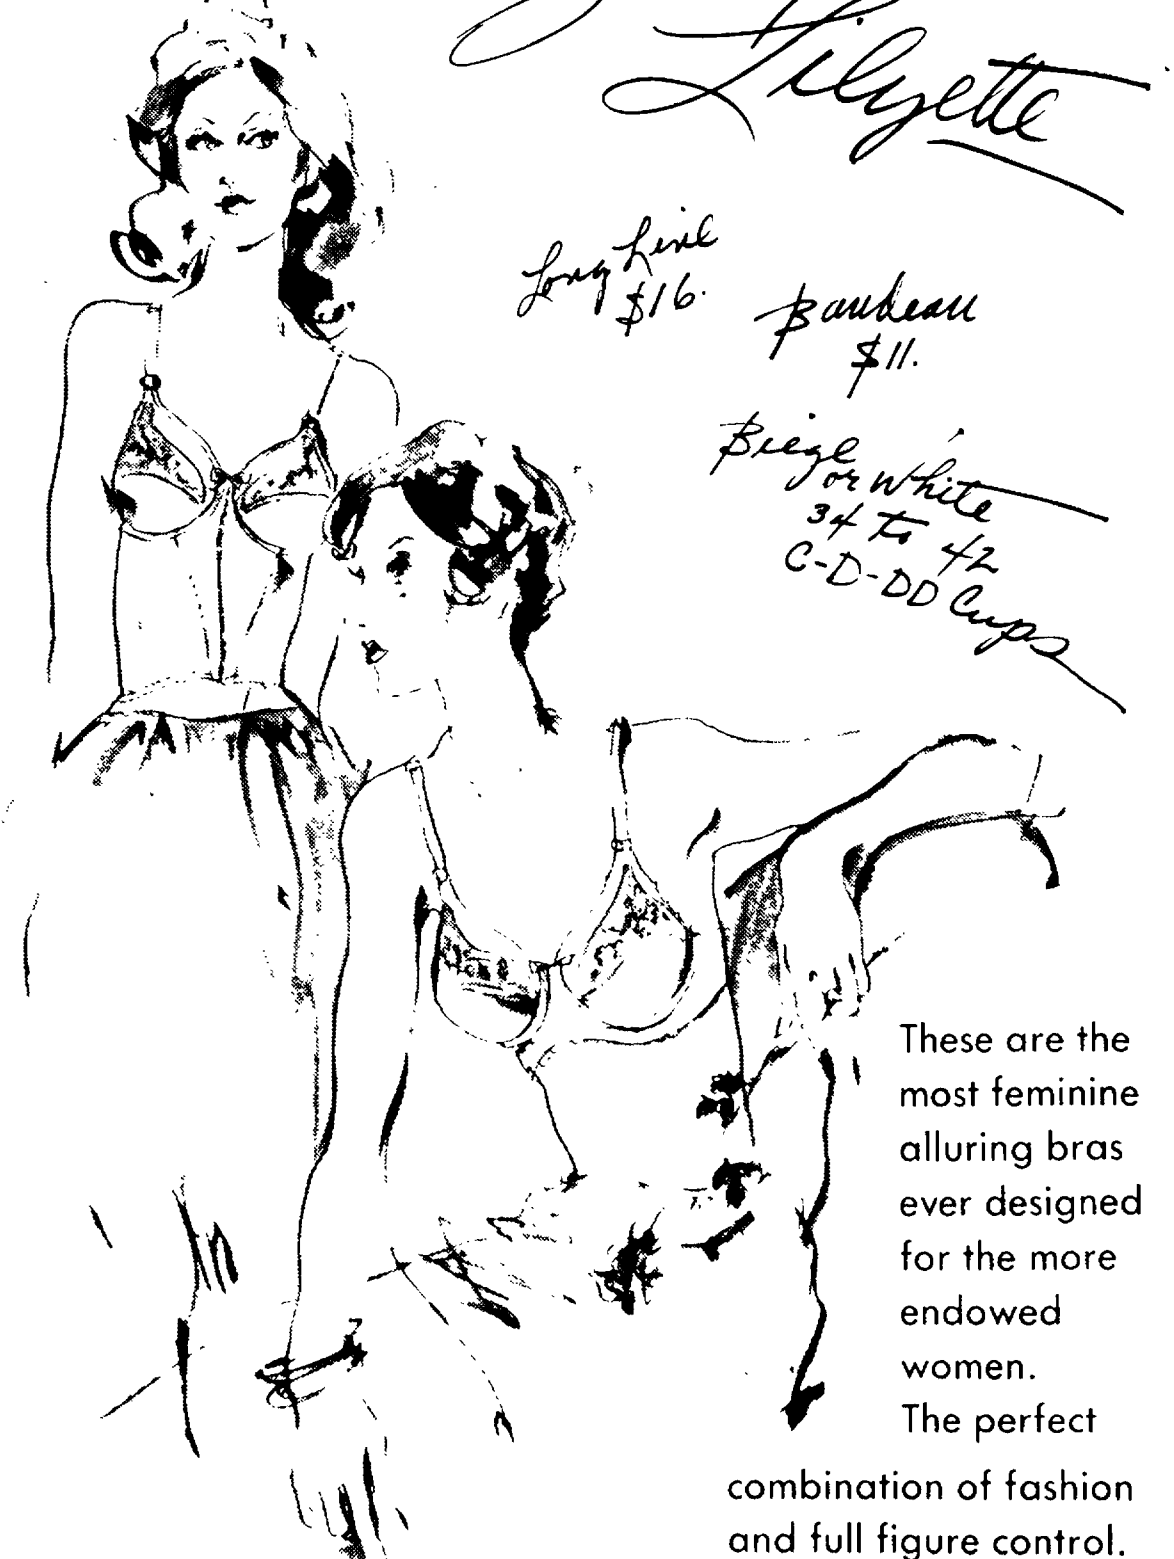 Lilyette
Long Line
$16.
Bandeau
$11.
Biege
or White
34 to 42
C-D-DD Cups
These are the
most feminine
alluring bras
ever designed
for the more
endowed
women.
The perfect
combination of fashion
and full figure control.